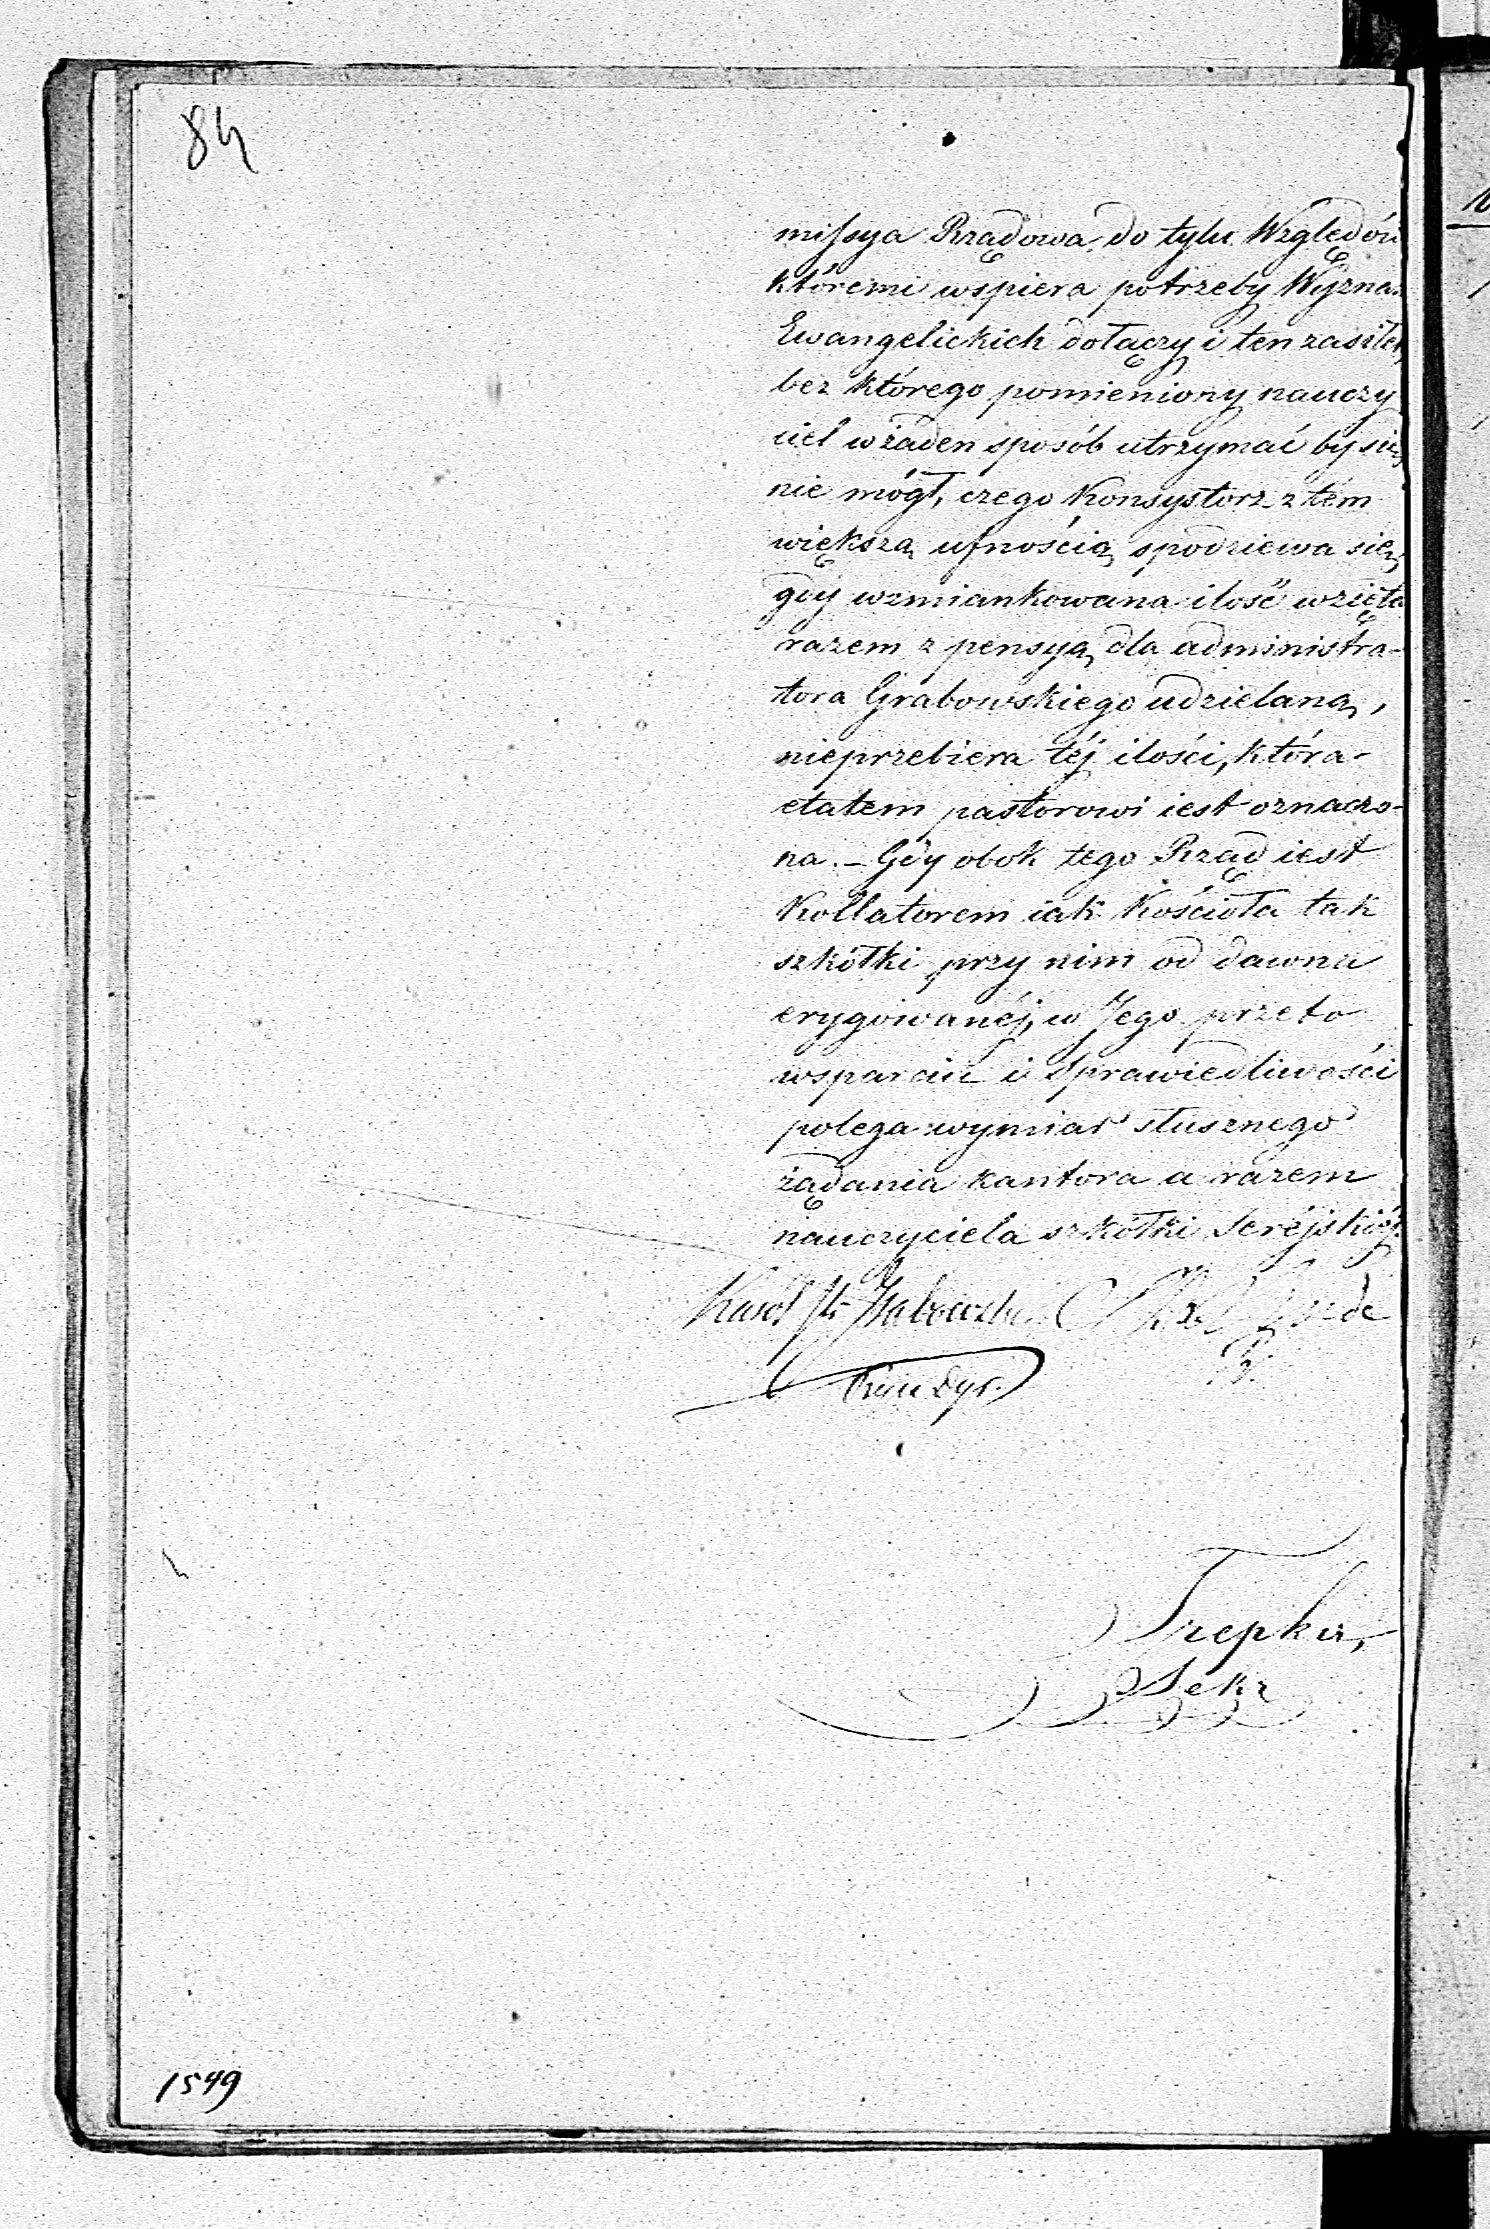 84
missya Rządowa, do tylu Względów
któremi wspiera potrzeby Wyznań
Ewangelickich dołączy i ten zasiłek,
bez którego pomieniony nauczy
ciel w żaden sposób utrzymać by się
nie mógł, czego Konsystorz z tém
większą ufnością spodziewa się,
gdy wzmiankowana ilość wzięta
razem z pensyą dla administra-
tora Grabowskiego udzielaną,
nieprzebiera téj ilości, która
etatem pastorowi iest oznaczo-
na. – Gdy obok tego Rząd iest
Kollatorem iak Kościoła tak
szkółki przy nim od dawna
erygowanéj, w Jego przeto
wsparciu i sprawiedliwości
polega wymiar słusznego
żądania kantora a razem
nauczyciela szkółki Seréjskiéj.
Karol
Trepka,
Sekr
1549